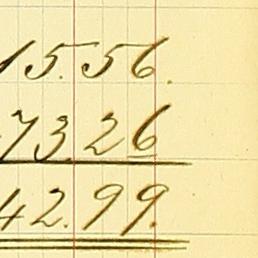 15.56.
73.26
42.99.